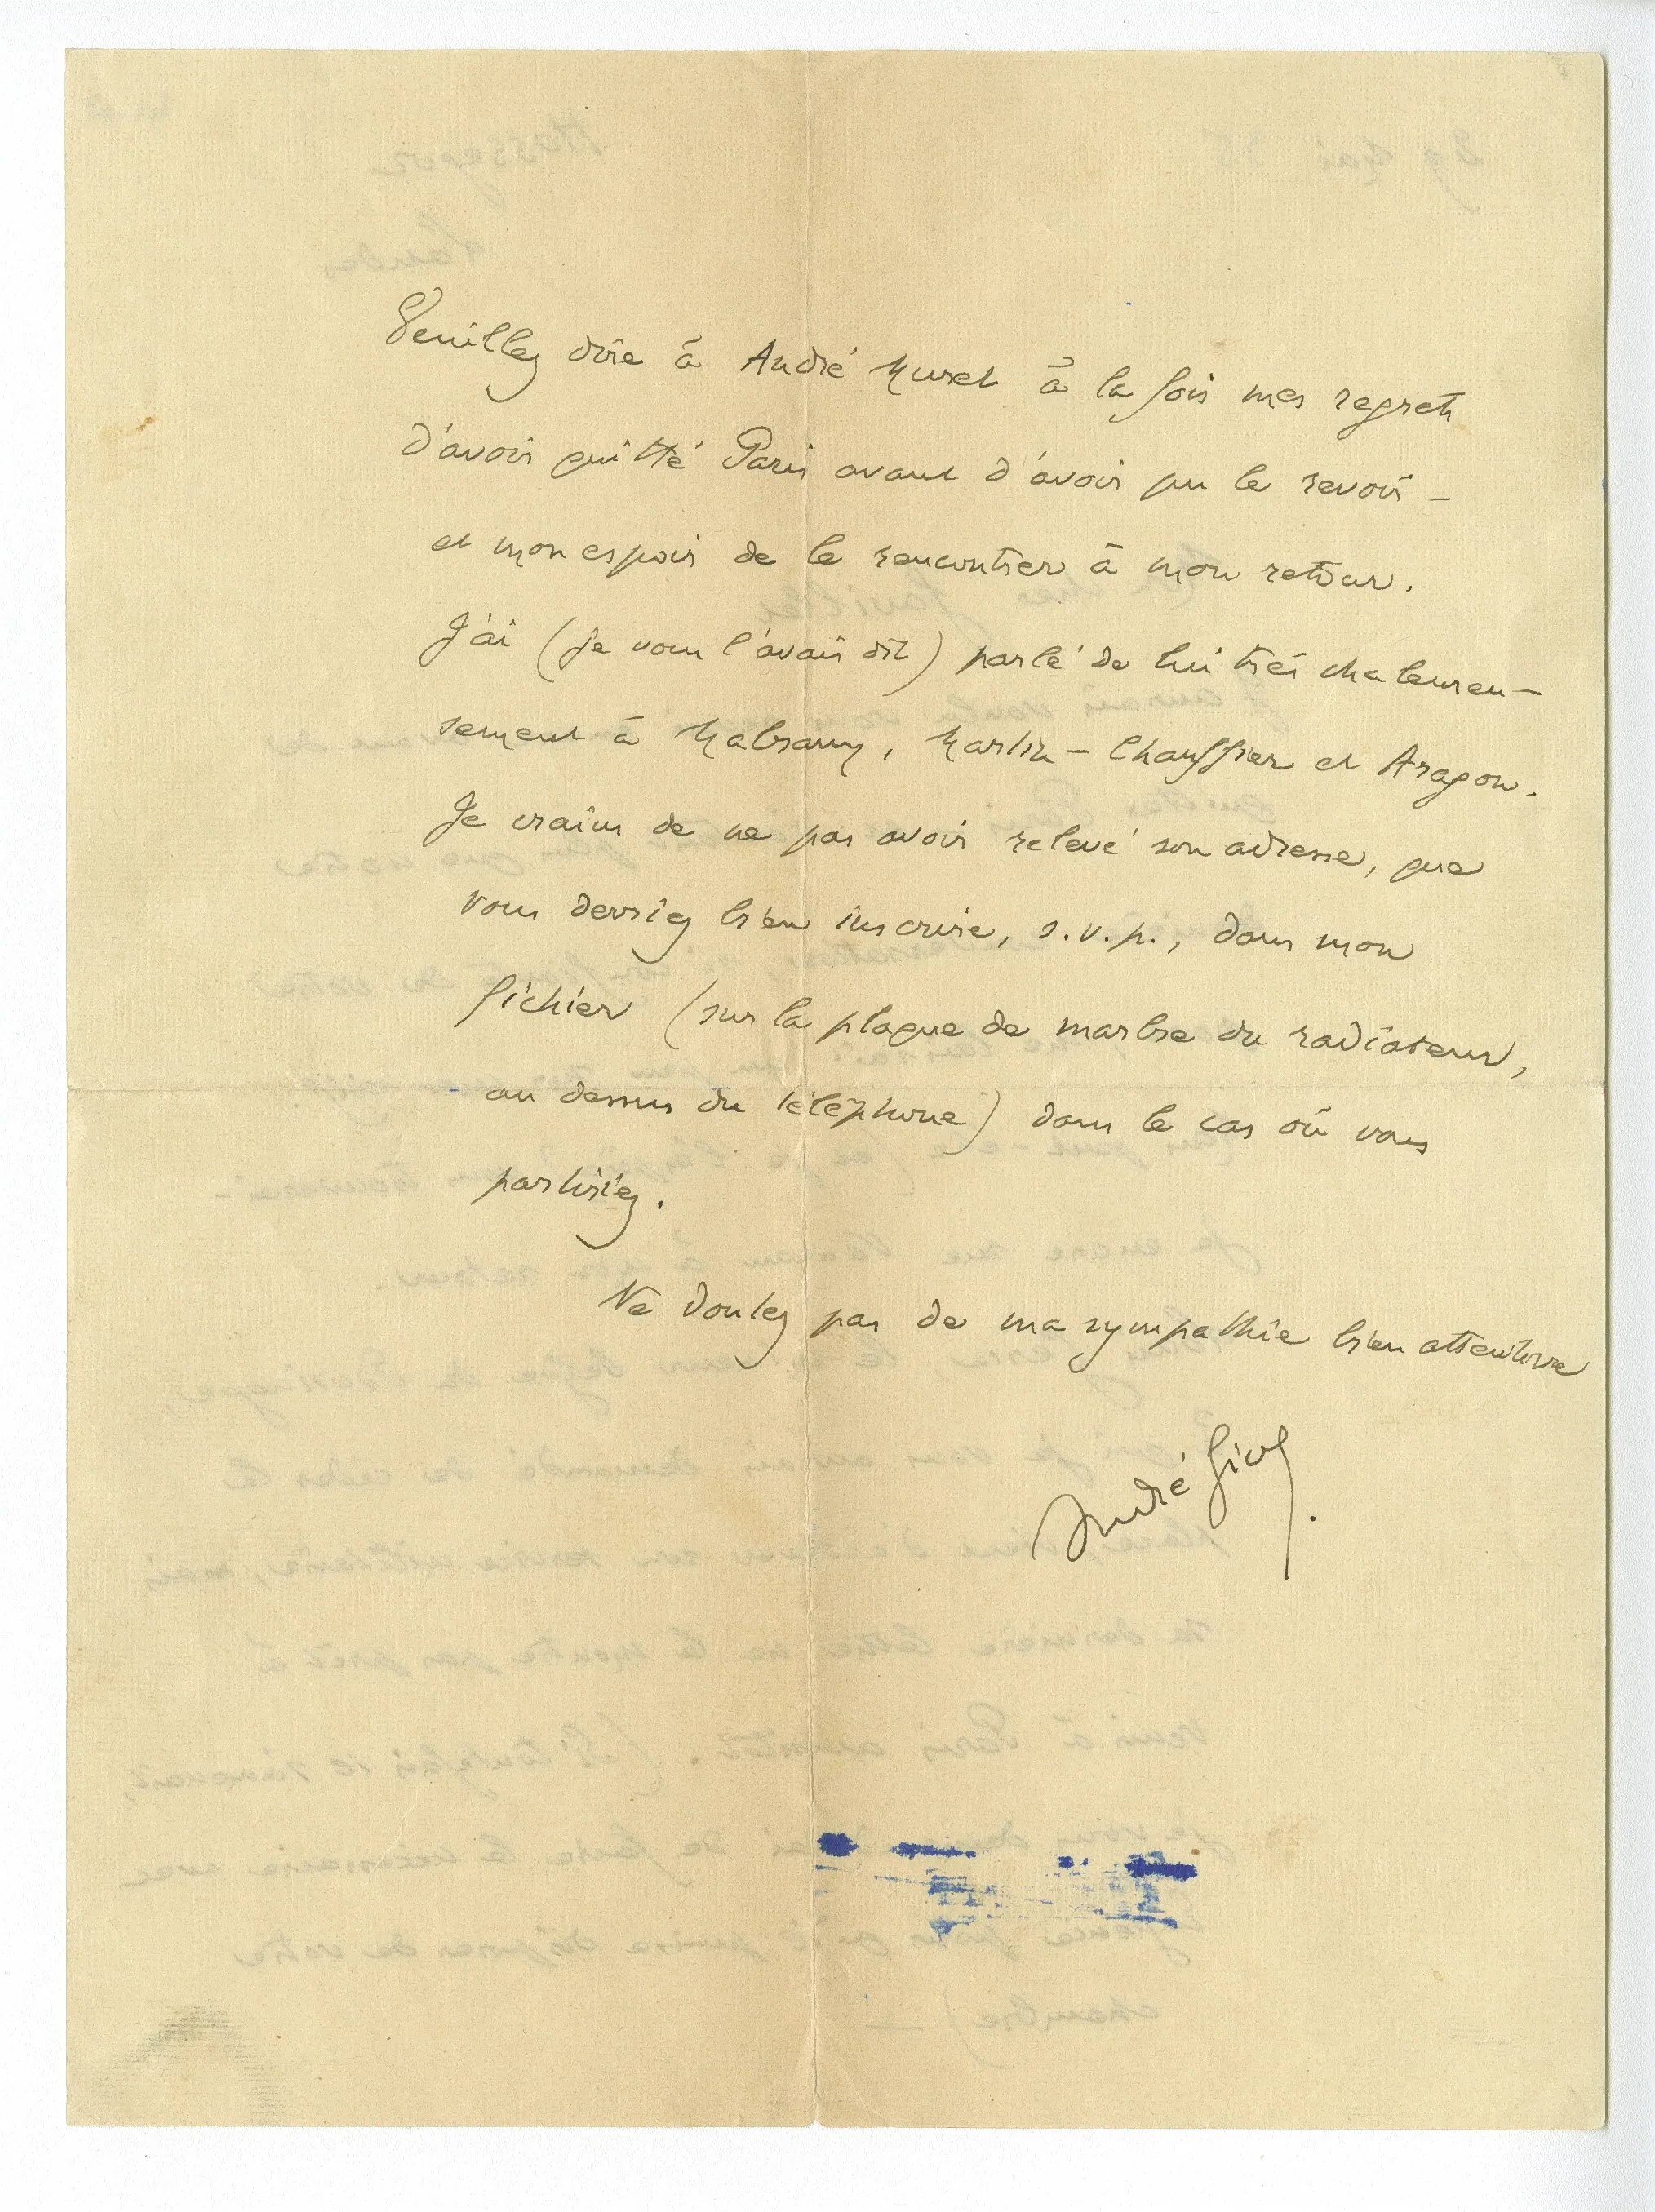 Veuillez dire à André Muret à la fois mes regrets
d'avoir quitté Paris avant d'avoir pu le revoir –
et mon espoir de le rencontrer à mon retour.
J'ai (je vous l'avais dit) parlé de lui très chaleureu-
sement à Malraux, Martin-Chauffier et Aragon.
Je crains de ne pas avoir relevé son adresse, que
vous devriez bien inscrire, s.v.p., dans mon
fichier (sur la plaque de marbre du radiateur,
au dessus du téléphone) dans le cas où vous
partiriez.
Ne doutez pas de ma sympathie bien attentive
André Gide.